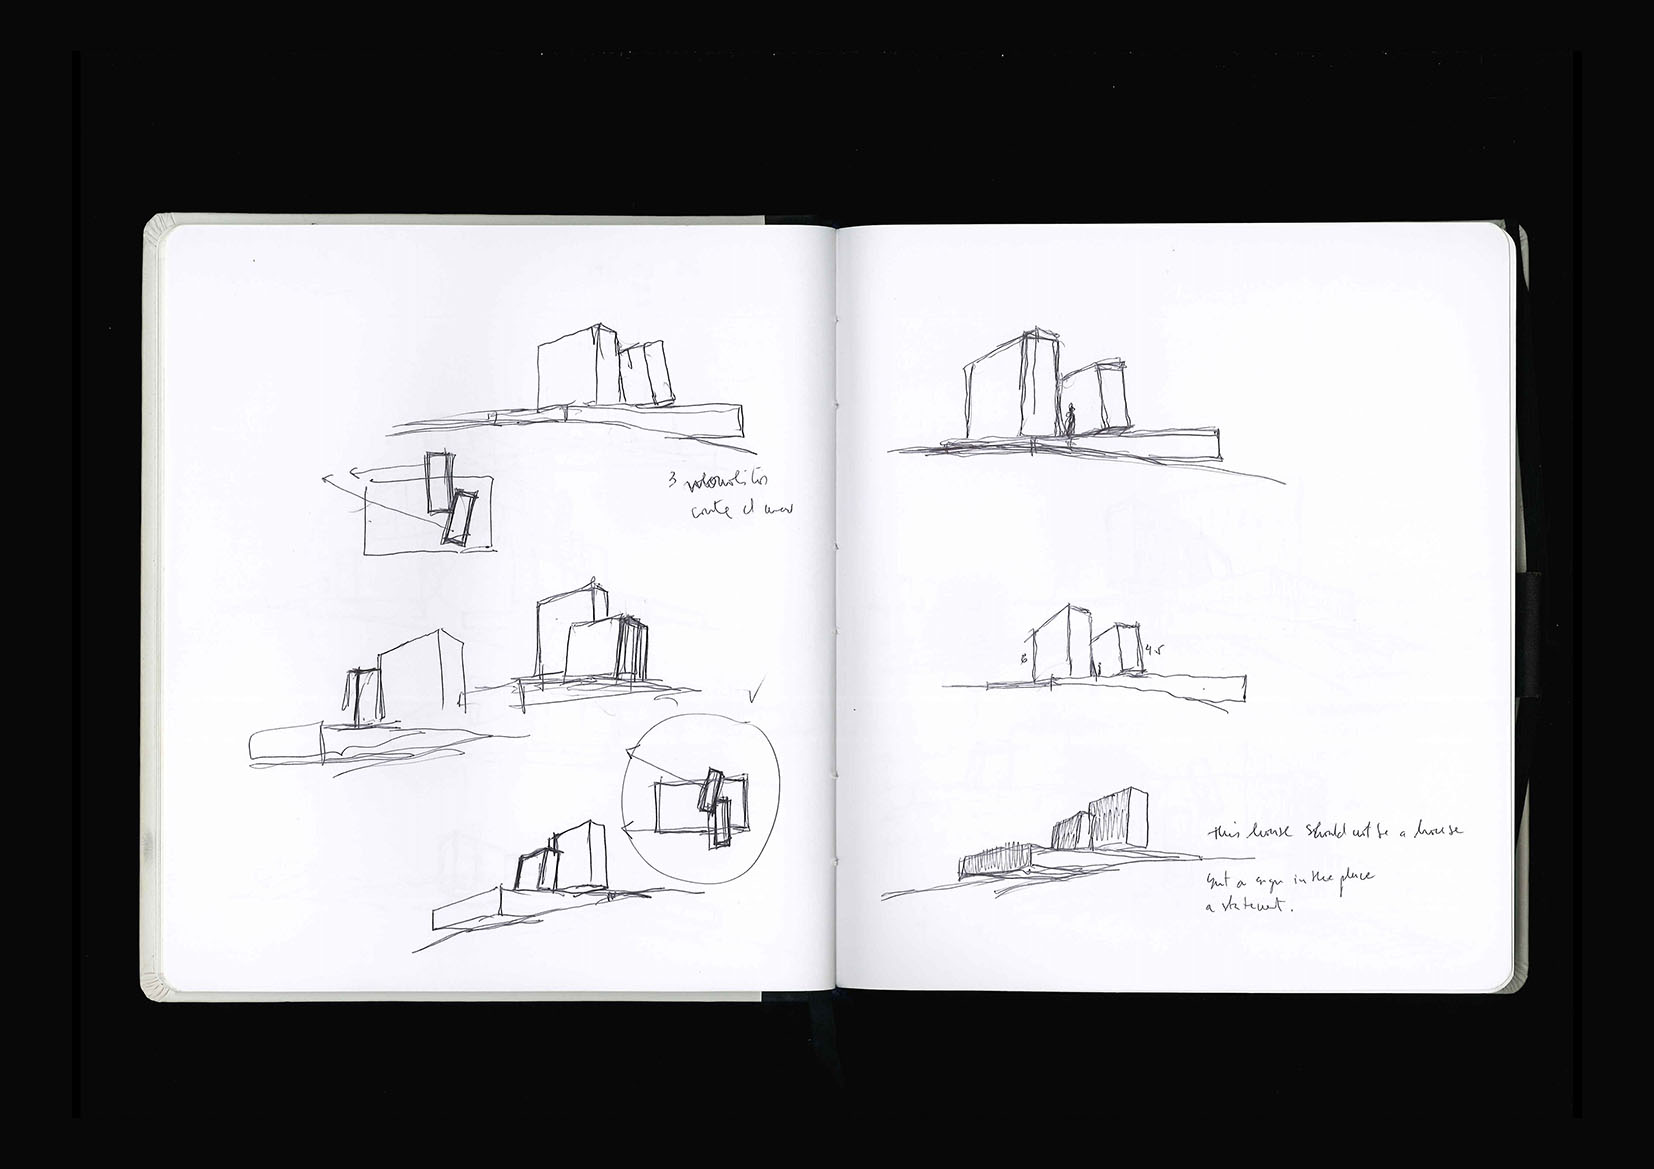 3 volumelitos
contra el mar
6
4.5
this house should not be a house
but a sign in the place
a statement.